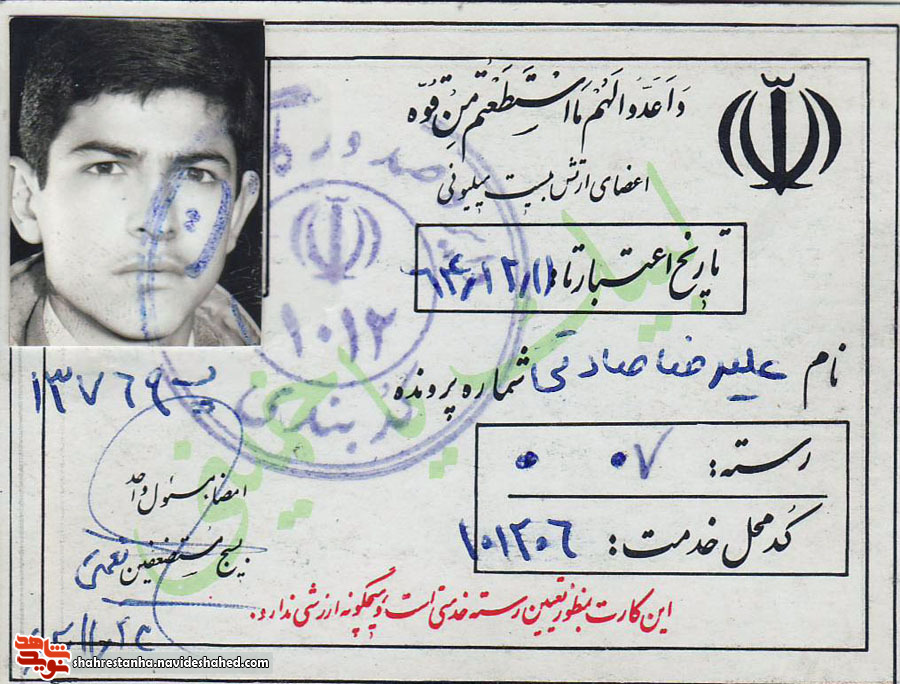 وَأَعِدُّوا لَهُمْ مَا اسْتَطَعْتُمْ مِنْ قُوَّه
اعضای ارتش بیست میلیونی
تاریخ اعتبار تا: ۶۴/۱۲/۱
نام علیرضا صادقی شماره پرونده
۱۳۷۶۹
رسته: ۰۷ ۰
کد محل خدمت: ۱۰۱۲۰۶
امضاء مسئول واحد
بسیج مستضعفین
این کارت بمنظور تعیین رسته خدمتی است و هیچگونه ارزشی ندارد.
لبیک یا خمینی
صدور
۱۰۱۲
بندی
نوید شاهد
shahrestanha.navideshahed.com